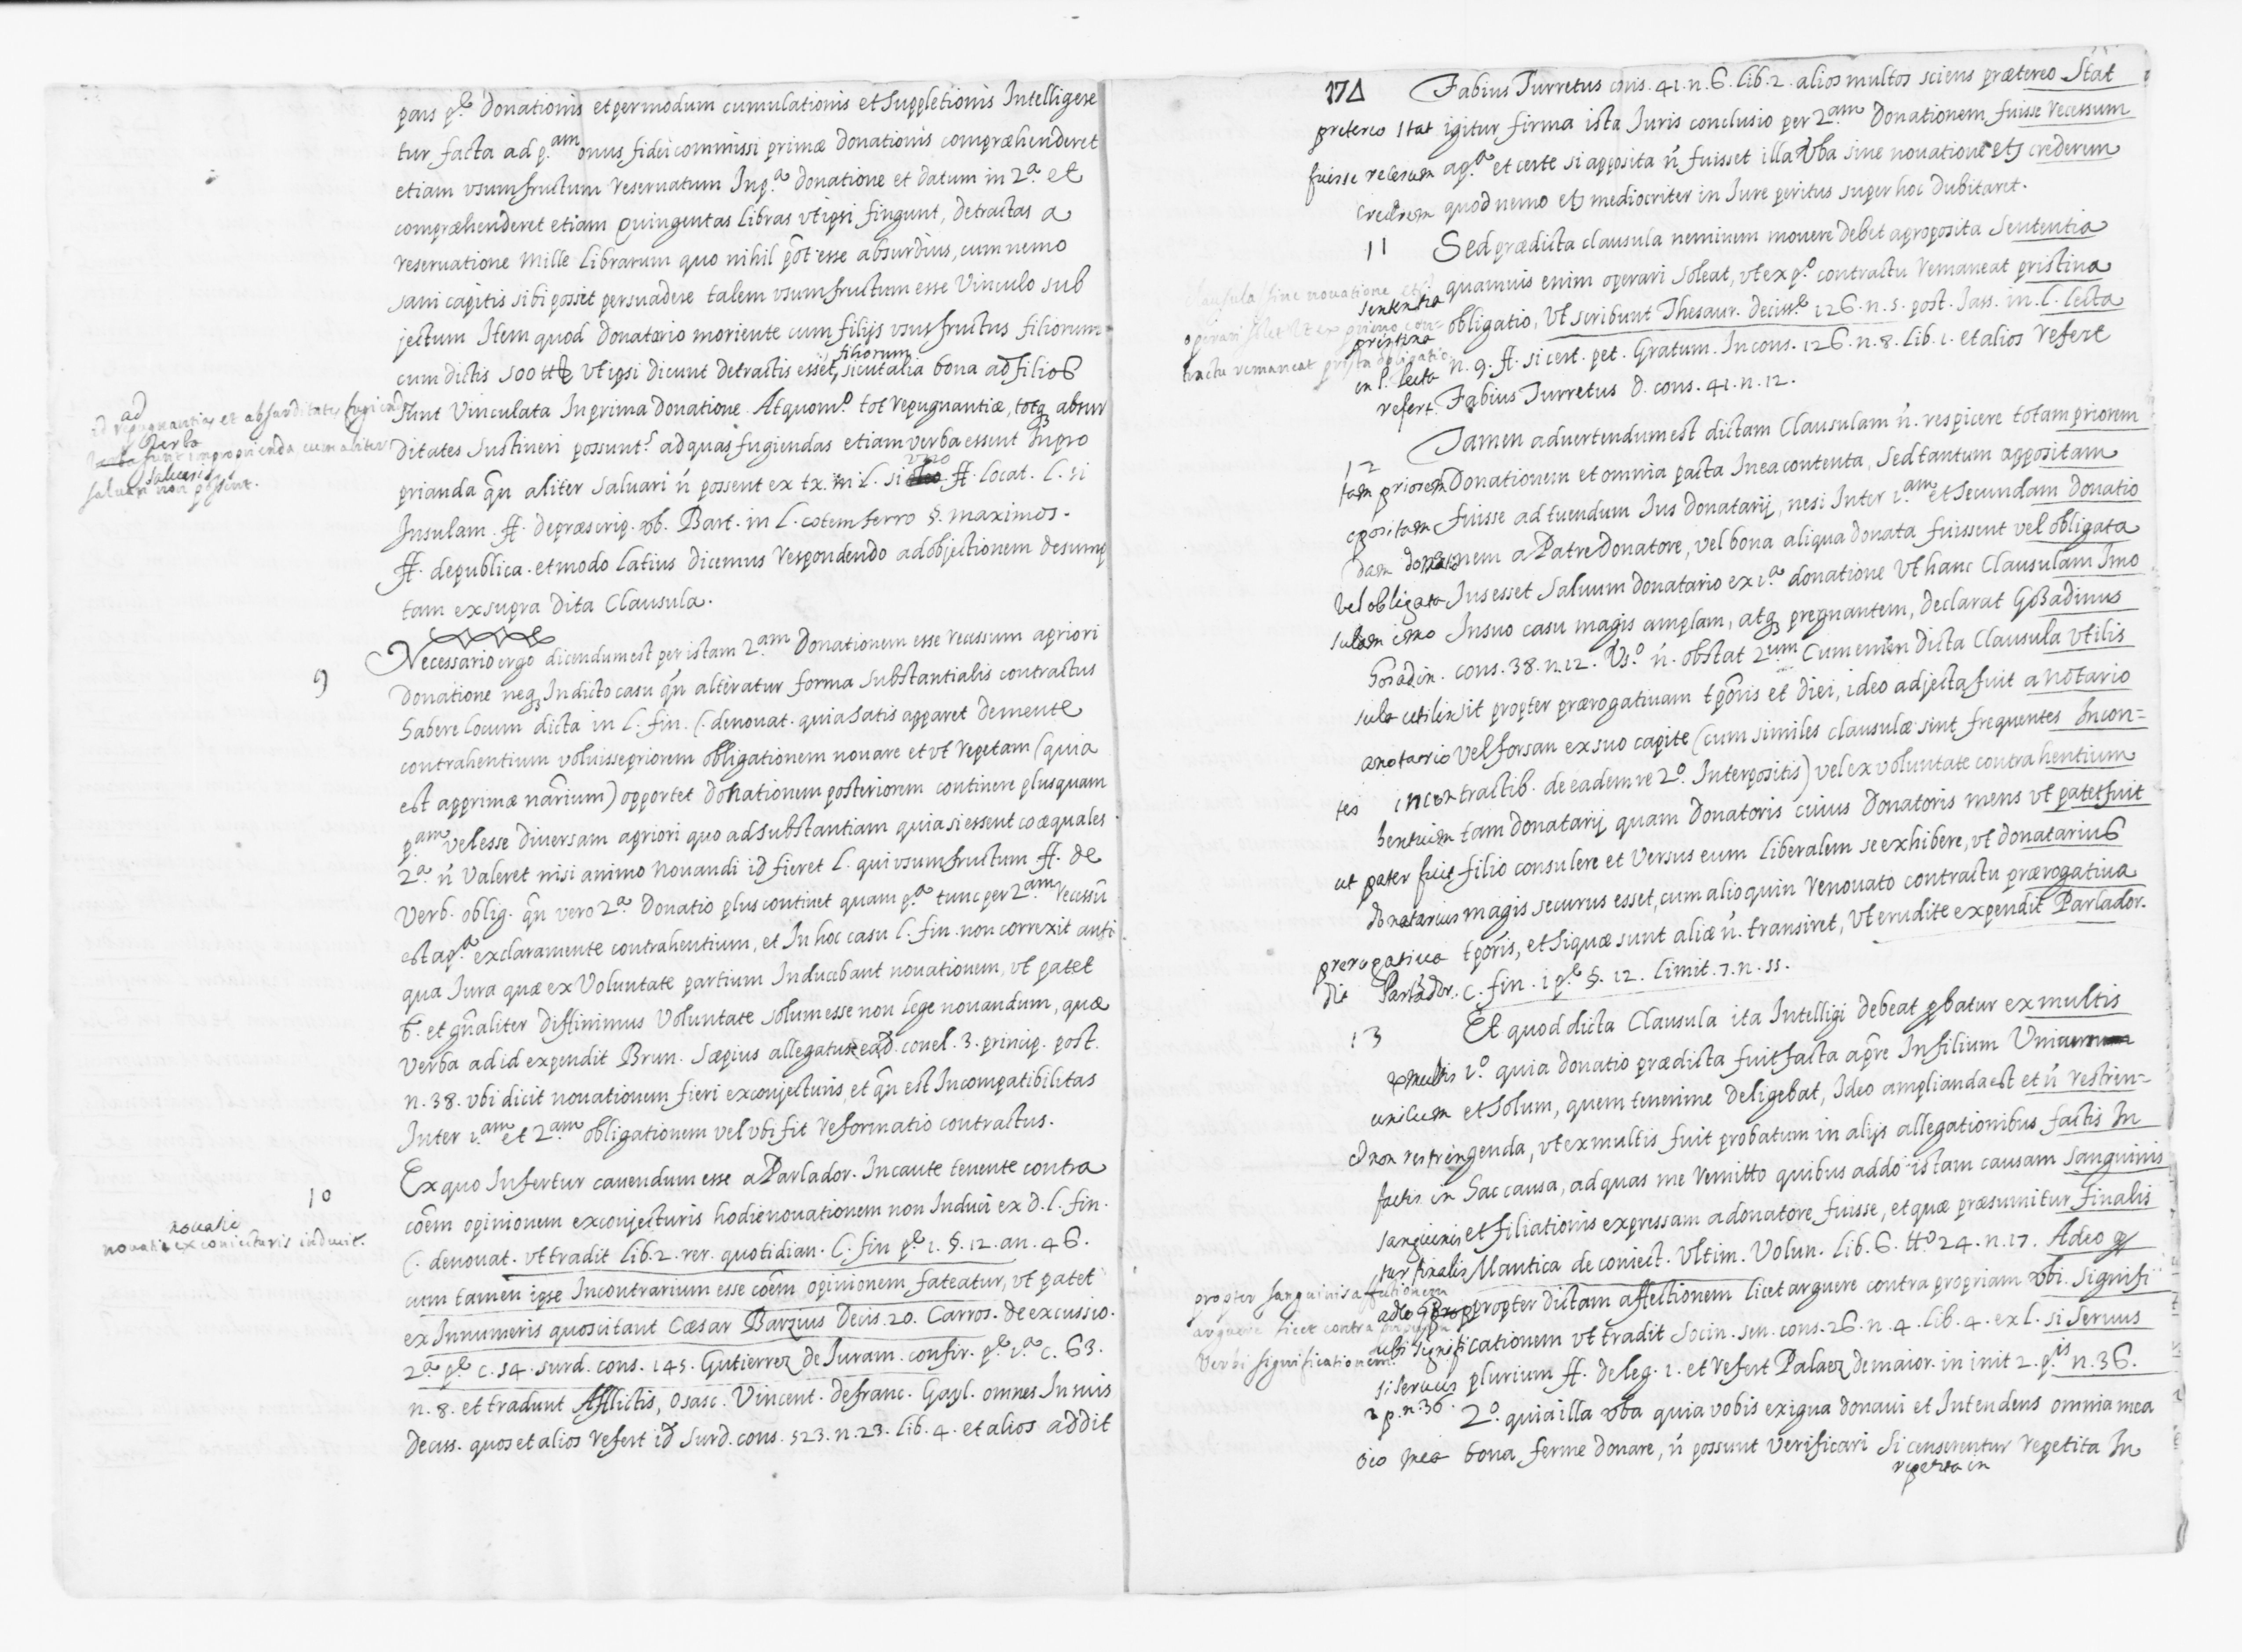 pars p.e donationis et per modum cumulationis et suppletionis Intelligere
tur facta ad p.am onus fidei commissi primæ donationis compræhenderet
etiam vsumfructum reseruatum In p.a donatione et datum in 2.a et
compræhenderet etiam quingentas libras vt ipsi fingunt, detractas a
reseruatione mille librarum quo nihil põt esse absurdius, cum nemo
sani capitis sibi posset persuadere talem vsumfructum esse Vinculo sub
jectum Item quod donatario moriente cum filijs vsusfructus filiorum
filiorum
cum dictis 500 vt ipsi dicunt detractis esset, sicut alia bona ad filios
ad
id repugnantias et absurditates fugiendas
verba
sunt improprienda cum aliter
saluari
saluari non possint.
sunt Vinculata In prima donatione. At quom.o tot repugnantiæ, totq absur
ditates sustineri possunt? ad quas fugiendas etiam verba essent Impro
vno
prianda qñ aliter saluari ñ possent ex tx. in l. si ff. locat. l. si
Insulam. ff. de præscrip. vb. Bart. in l. cotem ferro §. maximos.
ff. de publica. et modo latius dicemus respondendo ad objectionem desump
tam ex supra dita Clausula.
9
Necessario ergo dicendum est per istam 2.am donationem esse recessum a priori
donatione neq In dicto casu qñ alteratur forma substantialis contractus
habere locum dicta in l. fin. C. de nouat. quia satis apparet de mente
contrahentium voluisse priorem obligationem nouare et vt repetam (quia
est apprimæ nãrium) opportet donationem posteriorem continere plusquam
p.am vel esse diuersam a priori quo ad substantiam quia si essent coæquales
2.a ñ valeret nisi animo nouandi id fieret l. qui vsumfructum ff. de
Verb. oblig. qñ vero 2.a donatio plus continet quam p.a tunc per 2.am recessũ
est a p.a ex clara mente contrahentium, et In hoc casu l. fin. non correxit anti
qua Jura quæ ex Voluntate partium Inducebant nouationem, vt patet
et gñaliter diffinimus Voluntate solum esse non lege nouandum, quæ
Verba ad id expendit Brun. sæpius allegatus ead. concl. 3. princip. post.
n. 38. vbi dicit nouationem fieri ex conjecturis, et qñ est Incompatibilitas
Inter 1.am et 2.am obligationem vel vbi fit reformatio contractus.
10
nouatio
nouatio ex coniecturis inducit.
Ex quo Infertur cauendum esse a Parlador. Incaute tenente contra
coẽm opinionem ex conjecturis hodie nouationem non Induci ex d. l. fin.
C. de nouat. vt tradit lib. 2. rer. quotidian. C. fin p.e 1. §. 12. an. 46.
cum tamen ipse In contrarium esse coẽm opinionem fateatur, vt patet
ex Innumeris quos citant Cæsar Barzius Decis. 20. Carros. de excussio.
2.a p.e c. 14. Surd. cons. 145. Gutierrez de Juram. confir. p.e 1.a c. 63.
n. 8. et tradunt Afflictis, Osasc. Vincent. de franc. Gayl. omnes In suis
deciss. quos et alios refert id Surd. cons. 323. n. 23. lib. 4. et alios addit
174
Fabius Turretus cons. 41. n. 6. lib. 2. alios multos sciens prætereo Stat
pretereo Stat igitur firma ista Juris conclusio per 2.am donationem fuisse recessum
fuisse recesum a p.a et certe si apposita ñ fuisset illa vba sine nouatione etc crederem
crederem quod nemo etc mediocriter in Jure peritus super hoc dubitaret.
11 Sed prædicta clausula neminem mouere debet a proposita sententia
clausula sine nouatione etc.
operari solet vt ex primo con=
tractu remaneat pristina obligatio
sententia quamuis enim operari soleat, vt ex p.o contractu remaneat pristina
pristina obligatio, vt scribunt Thesaur. decis.e 126. n. 5. post. Jass. in l. lecta
in l. lecta n. 9. ff. si cert. pet. Gratum. In cons. 126. n. 8. lib. 1. et alios refert
refert. Fabius Turretus d. cons. 41. n. 12.
12 Tamen aduertendum est dictam Clausulam ñ. respicere totam priorem
tam priorem Donationem et omnia pacta In ea contenta, sed tantum appositam
apositam fuisse ad tuendum Jus donatarij, nesi Inter 1.am et secundam donatio
dam donationem a Patre Donatore, vel bona aliqua donata fuissent vel obligata
vel obligata Jus esset saluum donatario ex 1.a donatione vt hanc Clausulam Imo
sulam imo In suo casu magis amplam, atq pregnantem, declarat Gozadinus
Gozadin. cons. 38. n. 12. Vs.o ñ. obstat 2.um Cum enim dicta Clausula vtilis
sula utilis sit propter prærogatiuam tp̃oris et diei, ideo adjecta fuit a notario
a notario vel forsan ex suo capite (cum similes clausulæ sint frequentes In con=
tes in contractib. de eadem re 2.o Interpositis) vel ex voluntate contrahentium
hentium tam donatarij quam Donatoris cuius Donatoris mens vt patet fuit
ut pater fuit filio consulere et versus eum liberalem se exhibere, vt donatarius
donatarius magis securus esset, cum alioquin renouato contractu prærogatiua
prerogatiua tp̃oris, et si quæ sunt aliæ ñ. transiret, vt erudite expendit Parlador.
dit Parlador. c. fin. 1 p.e §. 12. limit. 7. n. 55.
13 Et quod dicta Clausula ita Intelligi debeat pbatur ex multis
ex multis 1.o quia donatio prædicta fuit facta a p̃re In filium Vnicum
unicum et solum, quem tenerime deligebat, Ideo amplianda est et ñ restrin=
et non restringenda, vt ex multis fuit probatum in alijs allegationibus factis In
factis in hac causa, ad quas me remitto quibus addo istam causam sanguinis
sanguinis et filiationis expressam a donatore fuisse, et quæ præsumitur finalis
tur finalis Mantica de coniect. Vltim. Volun. lib. 6. tt.o 24. n. 17. Adeo q
propter sanguinis affectionem
arguere licet contra propriam
verbi significationem.
adeo q propter dictam affectionem licet arguere contra propriam vbi. signifi
ubi signification em vt tradit Socin. sen. cons. 26. n. 4. lib. 4. ex l. si seruus
si seruus plurium ff. de leg. 1. et refert Palaez de maior. in init 2. p.is n. 36.
2 p. n. 36. 2.o quia illa vba quia vobis exigua donaui et Intendens omnia mea
nia mea bona ferme donare, ñ possunt verificari si censerentur repetita In
repetita in